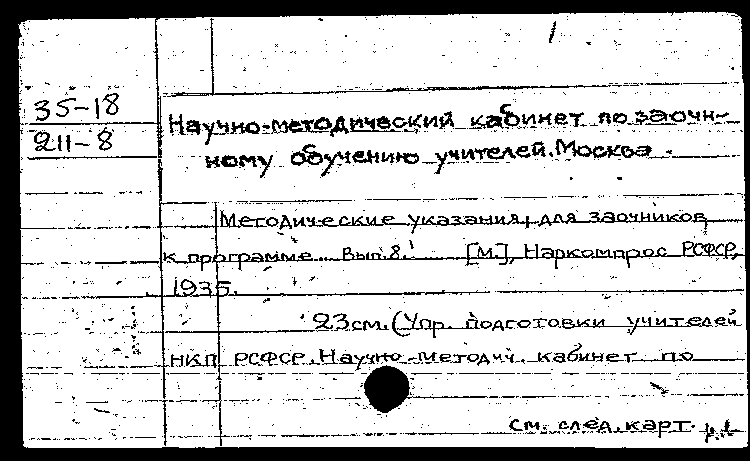 35-18
211-8
Научно-методический кабинет по заоч-
ному обучению учителей. Москва.
Методические указания для заочников
к программе... Вып. 8. [М.], Наркомпрос РСФСР,
1935.
23 см. (Упр. подготовки учителей
НКП РСФСР. Научно-методич. кабинет по
см. след. карт.